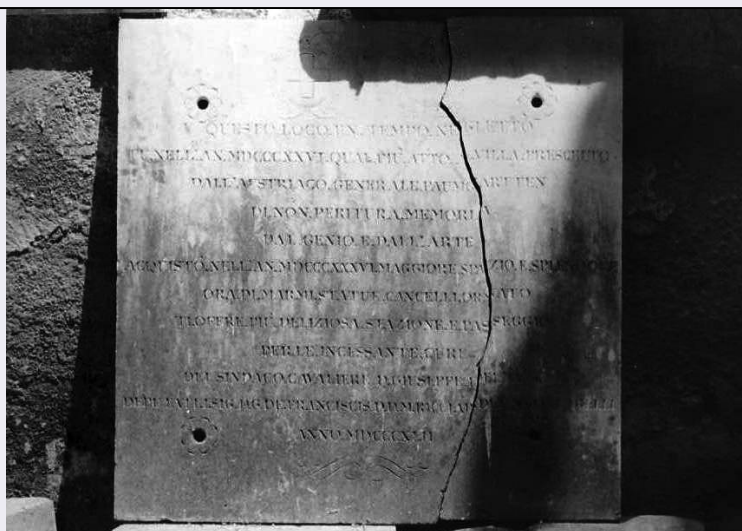 QUESTO.LOCO.UN.TEMPO.NEGLETTO
FU.NELL'.AN.MDCCCXXVI.QUAL.PIÙ.ATTO.A.VILLA.PRESCELTO
DALL'AUSTRIACO.GENERALE.PAUMGARTTEN
DI.NON.PERITURA.MEMORIA
DAL.GENIO.E.DALL'.ARTE
ACQUISTÒ.NELL'.AN.MDCCCXXXVI.MAGGIORE.SPAZIO.E.SPLENDORE
ORA.DI.MARMI.STATUE.CANCELLI.ORNATO
T'.OFFRE.PIÙ.DELIZIOSA.STAZIONE.E.PASSEGGIO
PER.LE.INCESSANTE.CURE
DEL.SINDACO.CAVALIERE.D.GIUSEPPE
DEPUTATI.SIG.DE.FRANCISCIS.D.D.M.
ANNO.MDCCCXLII